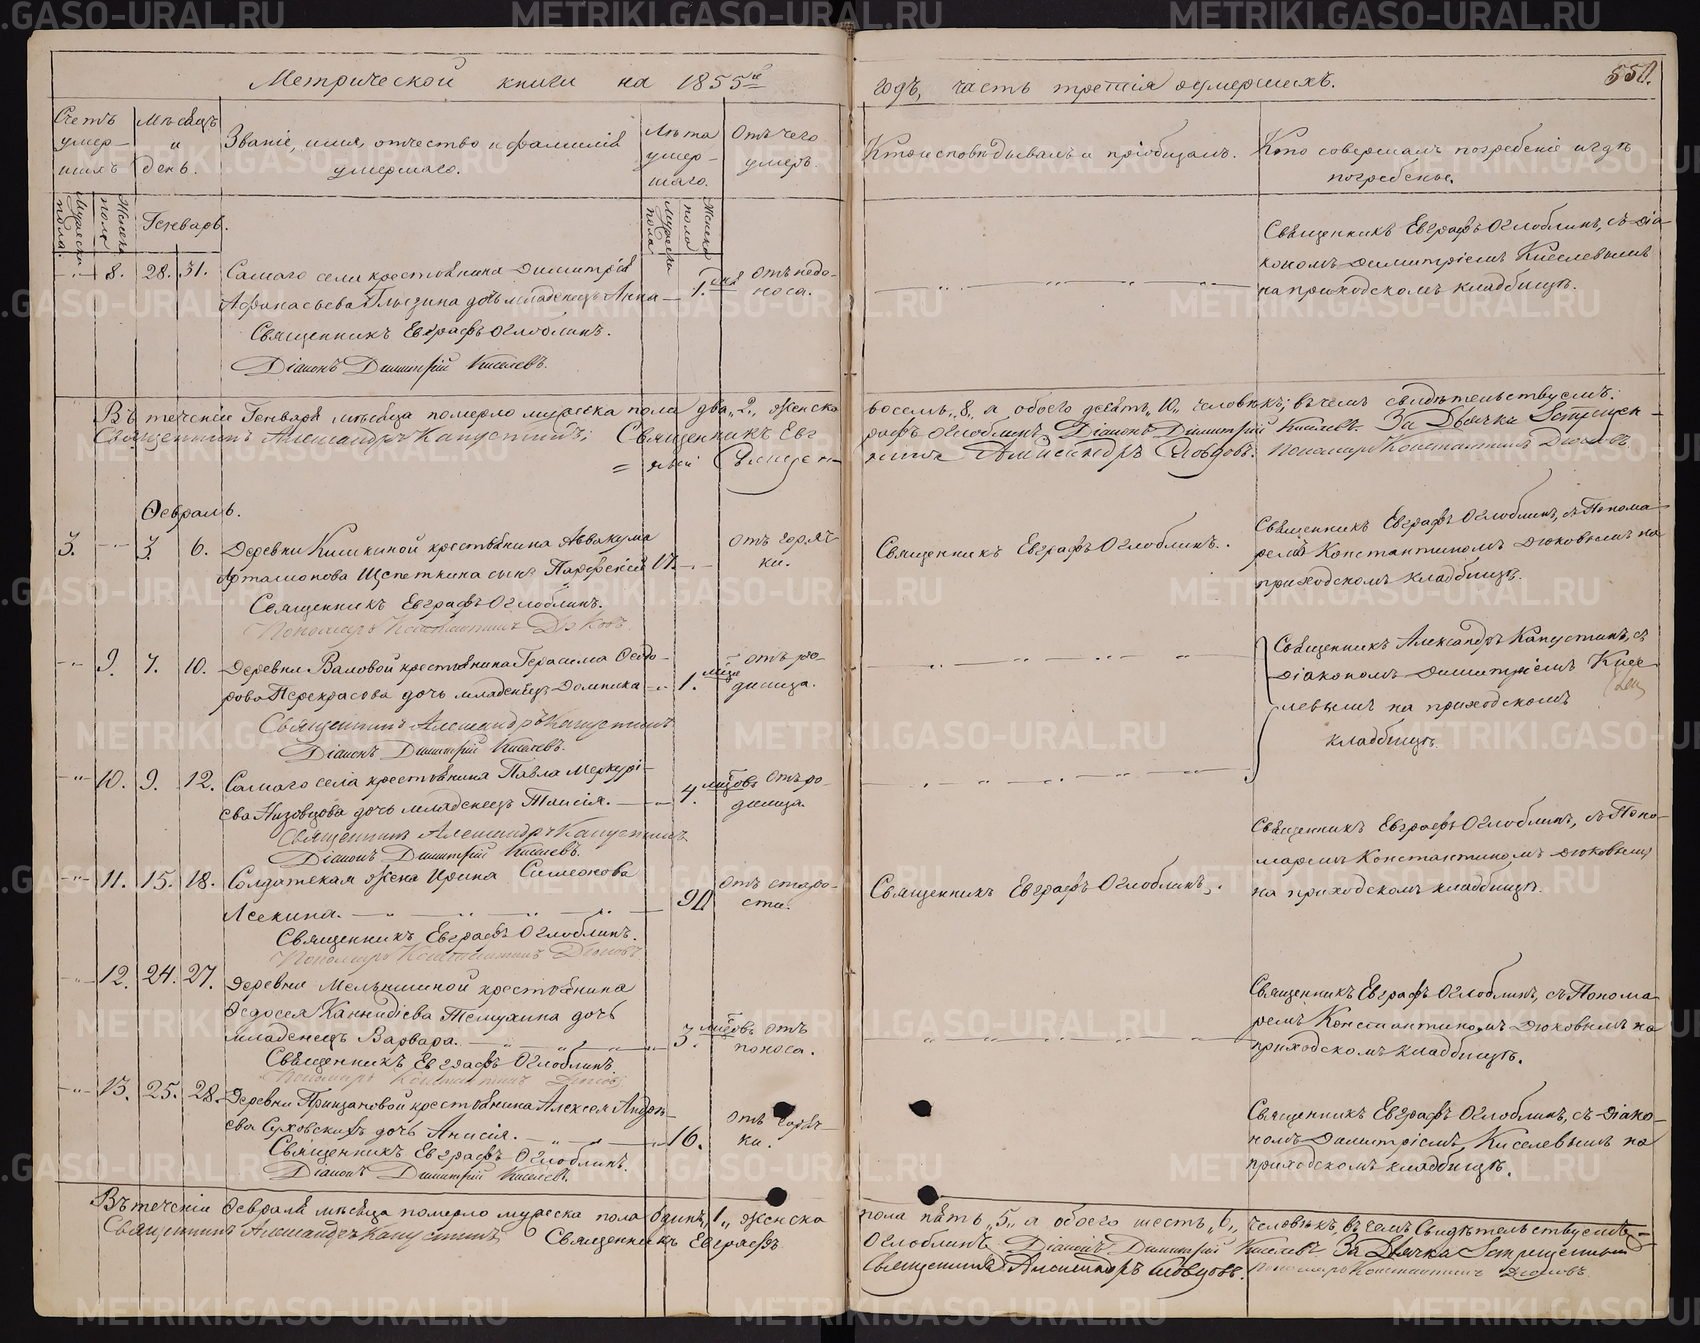 Метрической книги на 1855й годъ, часть третія о умершихъ.
550.
Счетъ умершихъ
Мѣсяцъ и день.
Званіе, имя, отчество и фамилія умершаго.
Лѣта умершаго.
Отъ чего умеръ.
Кто исповѣдывалъ и пріобщалъ.
Кто совершалъ погребеніе и гдѣ погребены.
Мужеска пола.
Женска пола
Генварь.
Мужеска пола
Женска пола
8. 28. 31. Самаго села крестьянина Димитрія
Афанасьева Глызина дочь младенецъ Анна 1. дня отъ недоноса.
Священникъ Евграфъ Оглоблинъ, съ діакономъ Димитріемъ Киселевымъ
на приходскомъ кладбищѣ.
Священникъ Евграфъ Оглоблинъ.
Діаконъ Димитрій Киселевъ.
Въ теченіи Генваря мѣсяца померло мужеска пола два „2„ женска восемь „8„ а обоего десять „10„ человѣкъ; въ чемъ свидѣтельствуемъ:
Священникъ Александръ Капустинъ; Священникъ Евграфъ Оглоблинъ. Діаконъ Димитрій Киселевъ. За Дьячка
Александръ Словцовъ. Пономарь Константинъ Дюковъ.
Февраль.
3. 3. 6. Деревни Кишкиной крестьянина Аввакума
Щепеткина сынъ Парфеній 17. отъ горячки.
Священникъ Евграфъ Оглоблинъ.
Священникъ Евграфъ Оглоблинъ, съ Пономаремъ Константиномъ Дюковымъ на
приходскомъ кладбищѣ.
Священникъ Евграфъ Оглоблинъ.
Пономарь Константинъ Дюковъ.
9. 7. 10. Деревни Валовой крестьянина Герасима Федорова Перекрасова дочь младенецъ Домника 1. мѣца отъ родимца.
Священникъ Александръ Капустинъ, съ
діакономъ Димитріемъ Киселевымъ на приходскомъ
кладбищѣ.
Священникъ Александръ Капустинъ
Діаконъ Димитрій Киселевъ.
10. 9. 12. Самаго села крестьянина Павла Меркурьева Низовцова дочь младенецъ Таисія. 4. мѣцовъ отъ родимца.
Священникъ Александръ Капустинъ
Діаконъ Димитрій Киселевъ.
11. 15. 18. Солдатская жена Ирина Симеонова
Лсекина. 90 отъ старости.
Священникъ Евграфъ Оглоблинъ.
Священникъ Евграфъ Оглоблинъ, съ Пономаремъ Константиномъ Дюковымъ
на приходскомъ кладбищѣ.
Священникъ Евграфъ Оглоблинъ.
Пономарь Константинъ Дюковъ
12. 24. 27. Деревни Мельниной крестьянина
Федосея Каннидіева Темухина дочь
младенецъ Варвара. 3. мѣцовъ отъ поноса.
Священникъ Евграфъ Оглоблинъ, съ Пономаремъ Константиномъ Дюковымъ на
приходскомъ кладбищѣ.
Священникъ Евграфъ Оглоблинъ.
Пономарь Константинъ Дюковъ
13. 25. 28. Деревни крестьянина Алексея Андреева Суховскихъ дочь Анисія. 16. отъ горячки.
Священникъ Евграфъ Оглоблинъ, съ діакономъ Димитріемъ Киселевымъ на
приходскомъ кладбищѣ.
Священникъ Евграфъ Оглоблинъ.
Діаконъ Димитрій Киселевъ.
Въ теченіи Февраля мѣсяца померло мужеска пола одинъ „1„ женска пола пять „5„ а обоего шесть „6„ человѣкъ, въ чемъ свидѣтельствуемъ
Священникъ Александръ Капустинъ, Священникъ Евграфъ Оглоблинъ Діаконъ Димитрій Киселевъ За Дьячка
Священникъ Александръ Словцовъ. Пономарь Константинъ Дюковъ.
METRIKI.GASO-URAL.RU